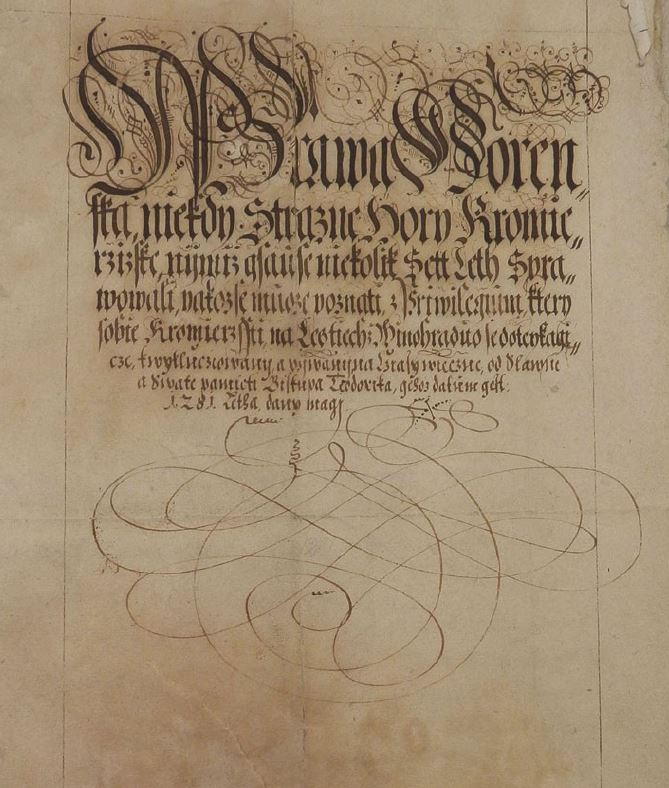 Prawa Horen„
ska, niekdy Strazne Hory Kromie„
rzizske, nimiz gsause niekolik Sett Leth Spra„
wowali, yakozse muoze poznati, z Priwilegium, ktery
sobie Kromierzssti, na Lestiech Winohraduo se doteykagi„
cze, a na Czasy wieczne, od Slawne
a Swate pamieti Biskupa Teodorika, gehoz datum gest:
1281. Letha, dany magi